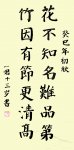 癸巳年初秋
花不知名難品第
竹因有節更清高
一君十三岁書